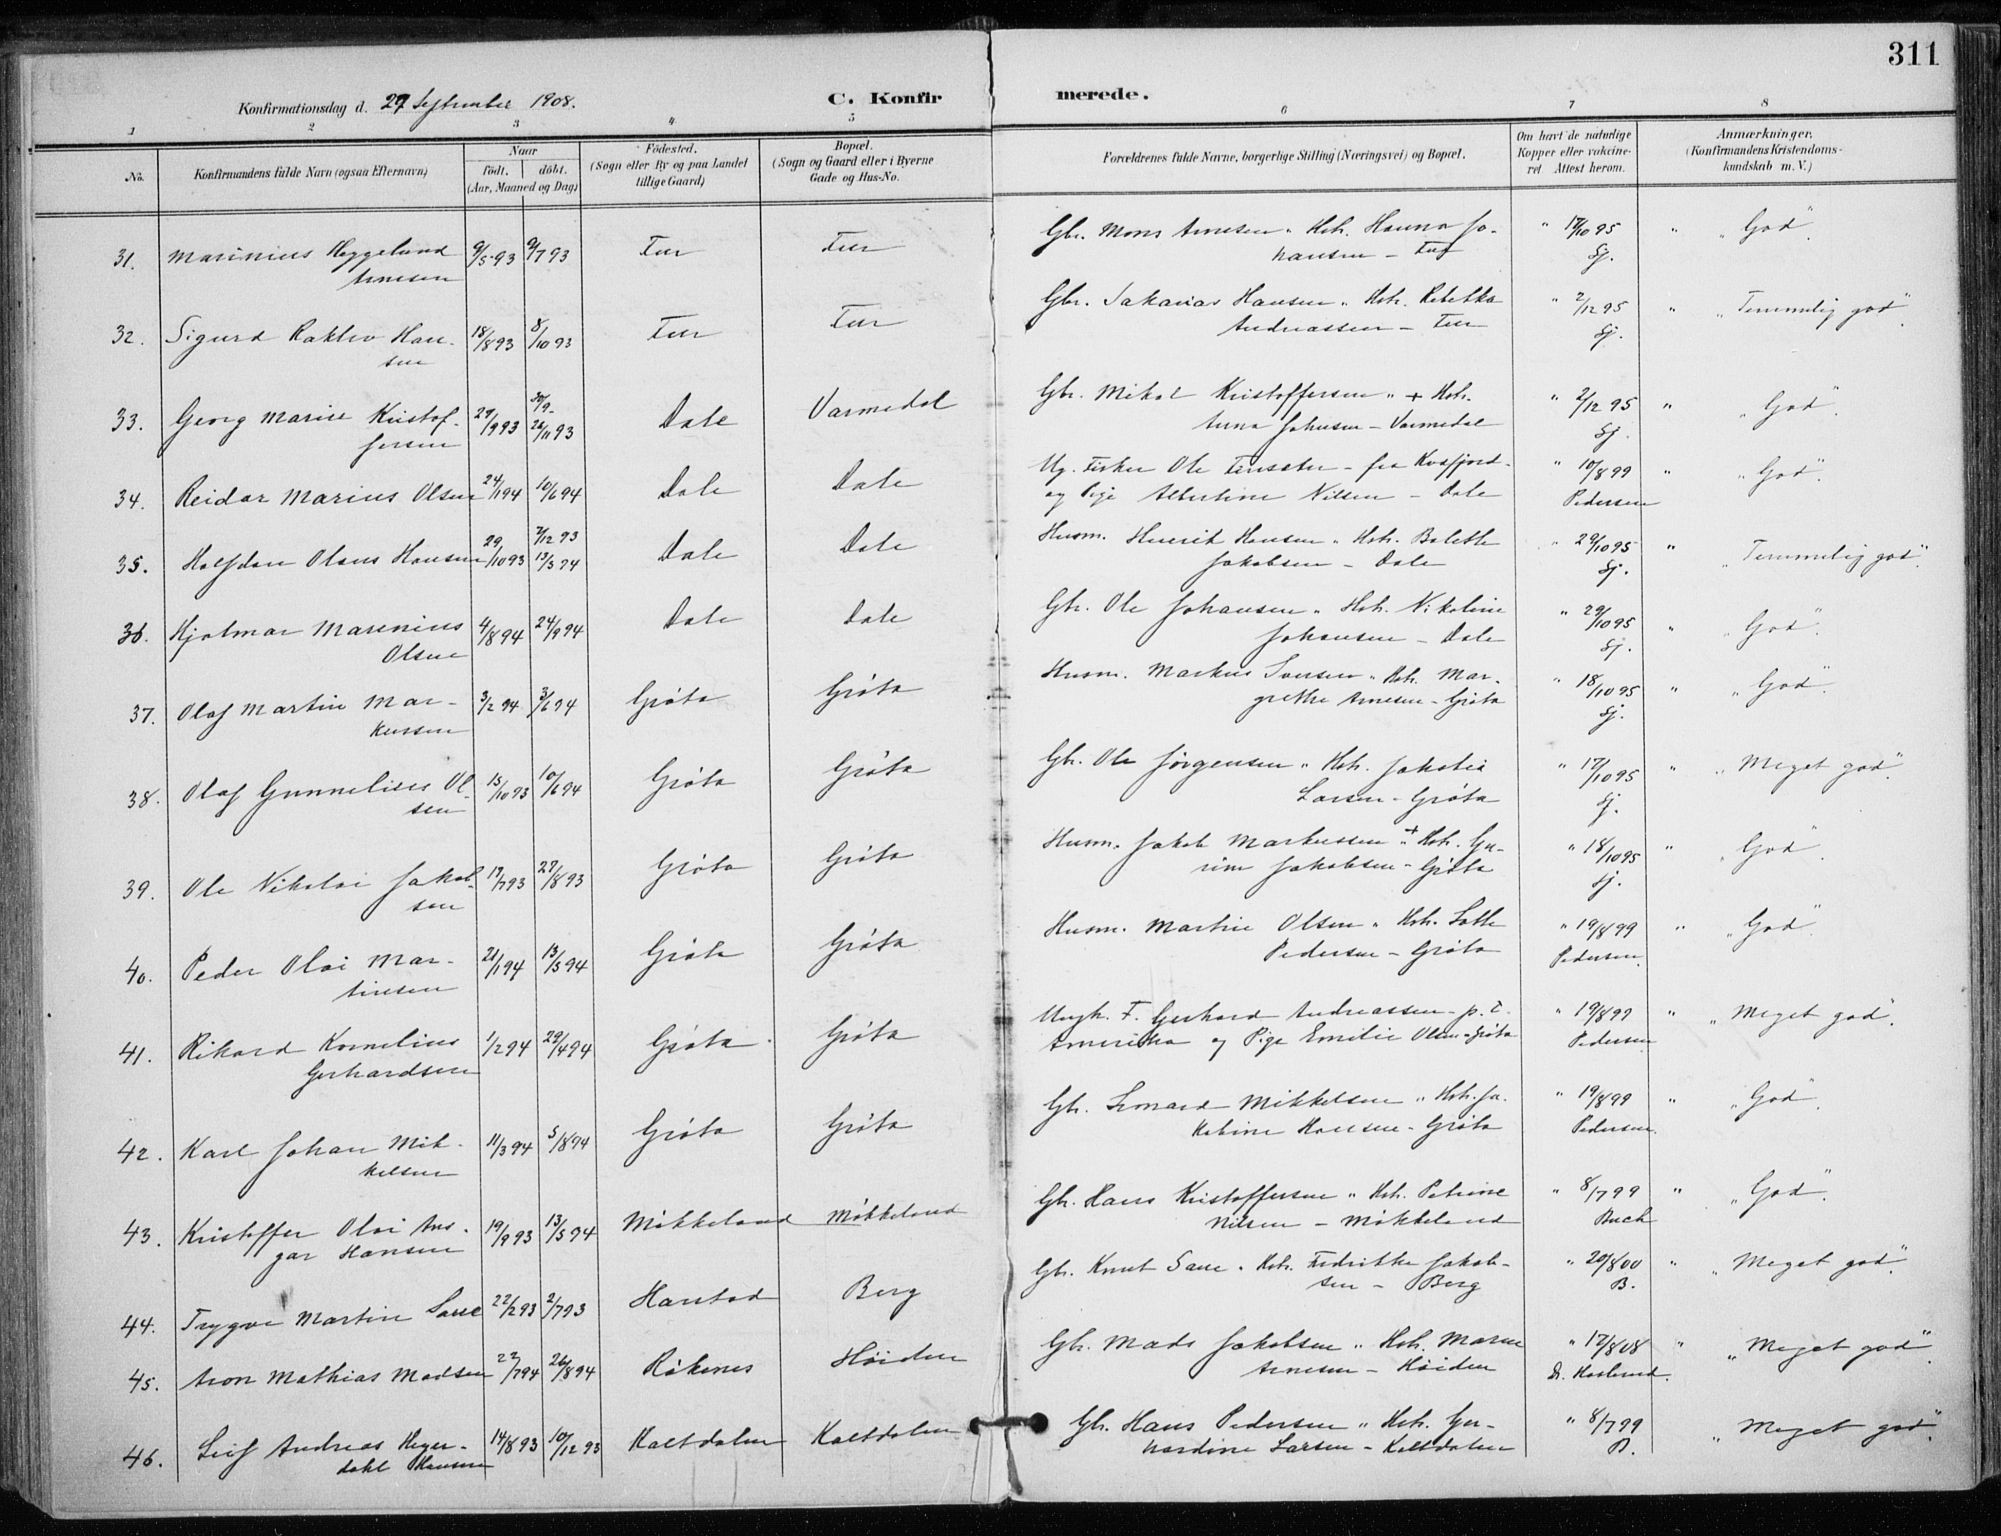 311
Konfirmationsdag d. 27 September 1908.
C. Konfirmerede.
1 2 3 4 5 6 7 8
No.
Konfirmandens fulde Navn (ogsaa Efternavn)
Naar
født. døbt.
(Aar, Maaned og Dag)
Fødested.
(Sogn eller By og paa Landet
tillige Gaard)
Bopæl.
(Sogn og Gaard eller i Byerne
Gade og Hus-No.
Forældrenes fulde Navne, borgerlige Stilling (Næringsvei) og Bopæl.
Om havt de naturlige
Kopper eller vakcine-
ret Attest herom.
Anmærkninger,
(Konfirmandens Kristendoms-
kundskab m. V.)
31. Marinius Heggelund 9/5 93 9/7 93 Fur Fur Gbr. Mons Arnesen " Hst. Hanna Jo- " 17/10 95 " "God".
Arnesen hansen - Fur Sj.
32. Sigurd Han- 18/8 93 8/10 93 Fur Fur Gbr. Sakarias Hansen " Hst. Rebekka " 2/12 95 " "Temmelig god".
sen Andreassen - Fur Sj.
33. Georg Marin Kristof- 29/9 93 30/9- 26/11 93 Dale Varmedal Gbr. Mikal Kristoffersen " + Hst. " 2/12 95 " "God".
fersen Anna Johnsen - Varmedal Sj.
34. Reidar Marius Olsen 24/1 94 10/6 94 Dale Dale Ug. Fisker Ole - fra Kvæfjord " 10/8 99 " "God".
og Pige Albertine Nilsen - Dale Pedersen
35. Halfdan Olaus Hansen 29/10 93 7/12 93 13/5 94 Dale Dale Husm. Henrik Hansen " Hst. Bolette " 29/10 95 " "Temmelig god".
Jakobsen - Dale Sj.
36. Hjalmar Marenius 4/8 94 24/9 94 Dale Dale Gbr. Ole Johansen " Hst. Nikoline " 29/10 95 " "God".
Olsen Johansen - Dale Sj.
37. Olaf Martin Mar- 3/2 94 3/6 94 Grøta Grøta Husm. Markus Iversen " Hst. Mar- " 18/10 95 " "God".
kussen grethe Arnesen - Grøta Sj.
38. Olaf Gunnelius Ol- 15/10 93 10/6 94 Grøta Grøta Gbr. Ole Jørgensen " Hst. Jakobia " 17/10 95 " "Meget god".
sen Larsen - Grøta Sj.
39. Ole Nikolai Jakob- 19/7 93 27/8 93 Grøta Grøta Husm. Jakob Markussen " + Hst. Gu- " 18/10 95 " "God".
sen Jakobsen - Grøta Sj.
40. Peder Olai Mar- 21/1 94 13/5 94 Grøta Grøta Husm. Martin Olsen " Hst. Lotte " 19/8 99 " "God".
tinsen Pedersen - Grøta Pedersen.
41. Rikard Kornelius 1/2 94 29/4 94 Grøta Grøta Ungk. F. Gerhard Andreassen - p. t. " 19/8 99 " "Meget god".
Gerhardsen Amerika og Pige Emilie Olsen - Grøta Pedersen
42. Karl Johan Mik- 11/3 94 5/8 94 Grøta Grøta Gbr. Leonard Mikkelsen " Hst. Ja- " 19/8 99 " "God".
kelsen kobine Hansen - Grøta Pedersen.
43. Kristoffer Olai Ans- 19/9 93 13/5 94 Møkkeland Møkkeland Gbr. Hans Kristoffersen " Hst. Petrine " 8/7 99 " "God".
gar Hansen Nilsen - Møkkeland Buch
44. Trygve Martin Saue 22/2 93 2/7 93 Harstad Berg Gbr. Knut Saue " Hst. Fredrikke Jakob- " 20/8 00 " "Meget god".
sen - Berg B.
45. Aron Mathias Madsen 22/7 94 26/8 94 Røkenes Høiden Gbr. Mads Jakobsen " Hst. Maren " 17/8 08 " "Meget god".
Arnesen - Høiden
46. Leif Andreas Heger- 14/8 93 10/12 93 Kaltdalen Kaltdalen Gbr. Hans Pedersen " Hst. Ger- " 8/7 99 "Meget god".
dahl Hansen hardine Larsen - Kaltdalen B.